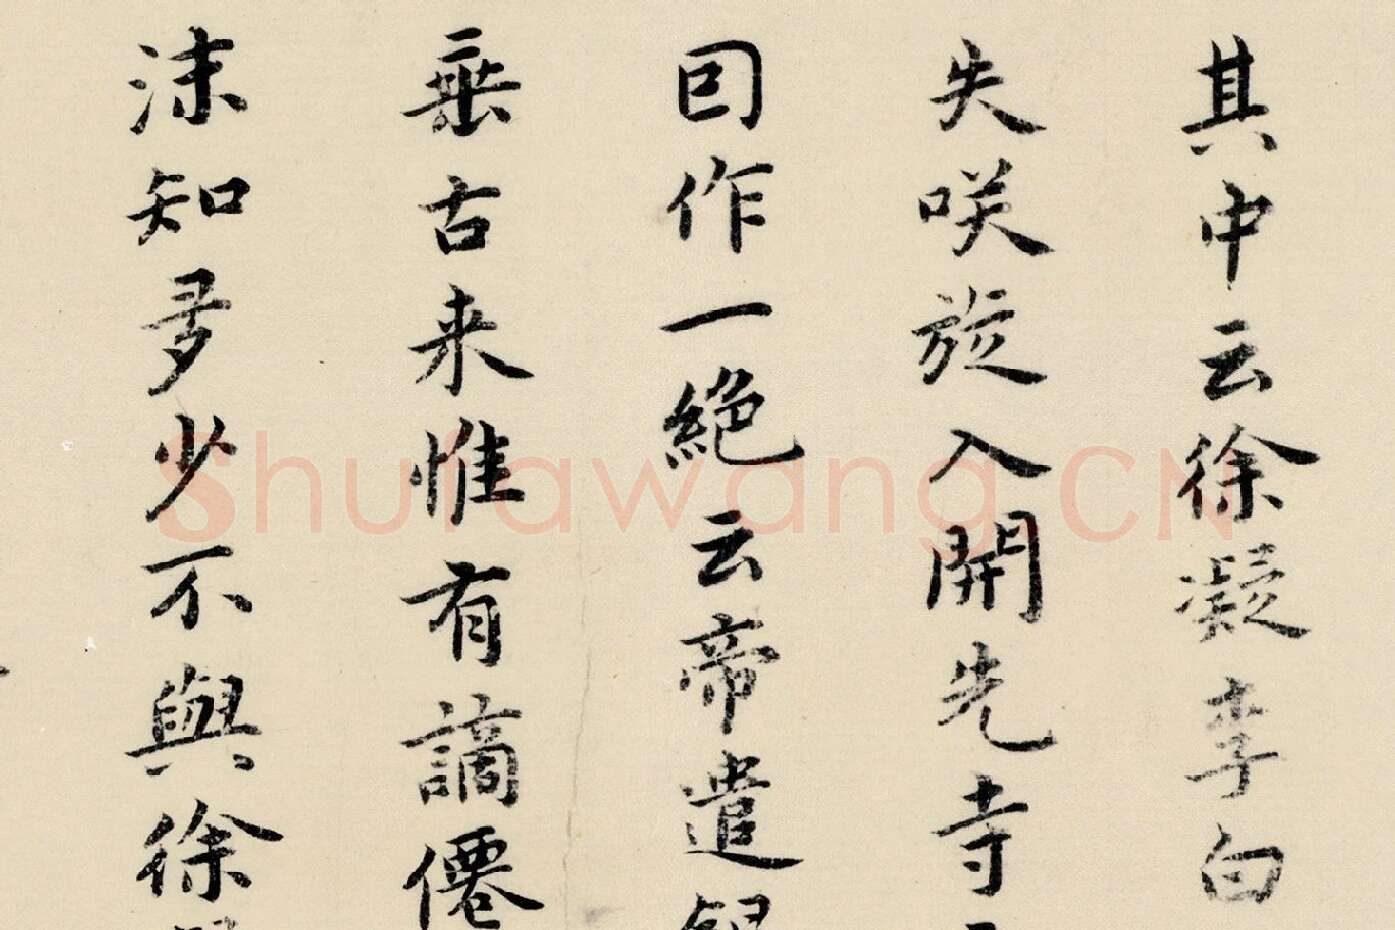 其中云徐凝李白
失咲旋入開先寺
回作一絕云帝遣銀
垂古来惟有謫僊
沫知多少不與徐
Shufawang.CN